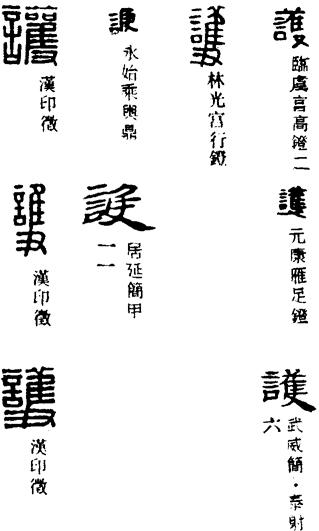 護
臨虞宮高鐙二
護
元康雁足鐙
護
武威簡·泰射
六
護
林光宮行鐙
護
永始乘輿鼎
護
居延簡甲
一一
護
漢印徵
護
漢印徵
護
漢印徵